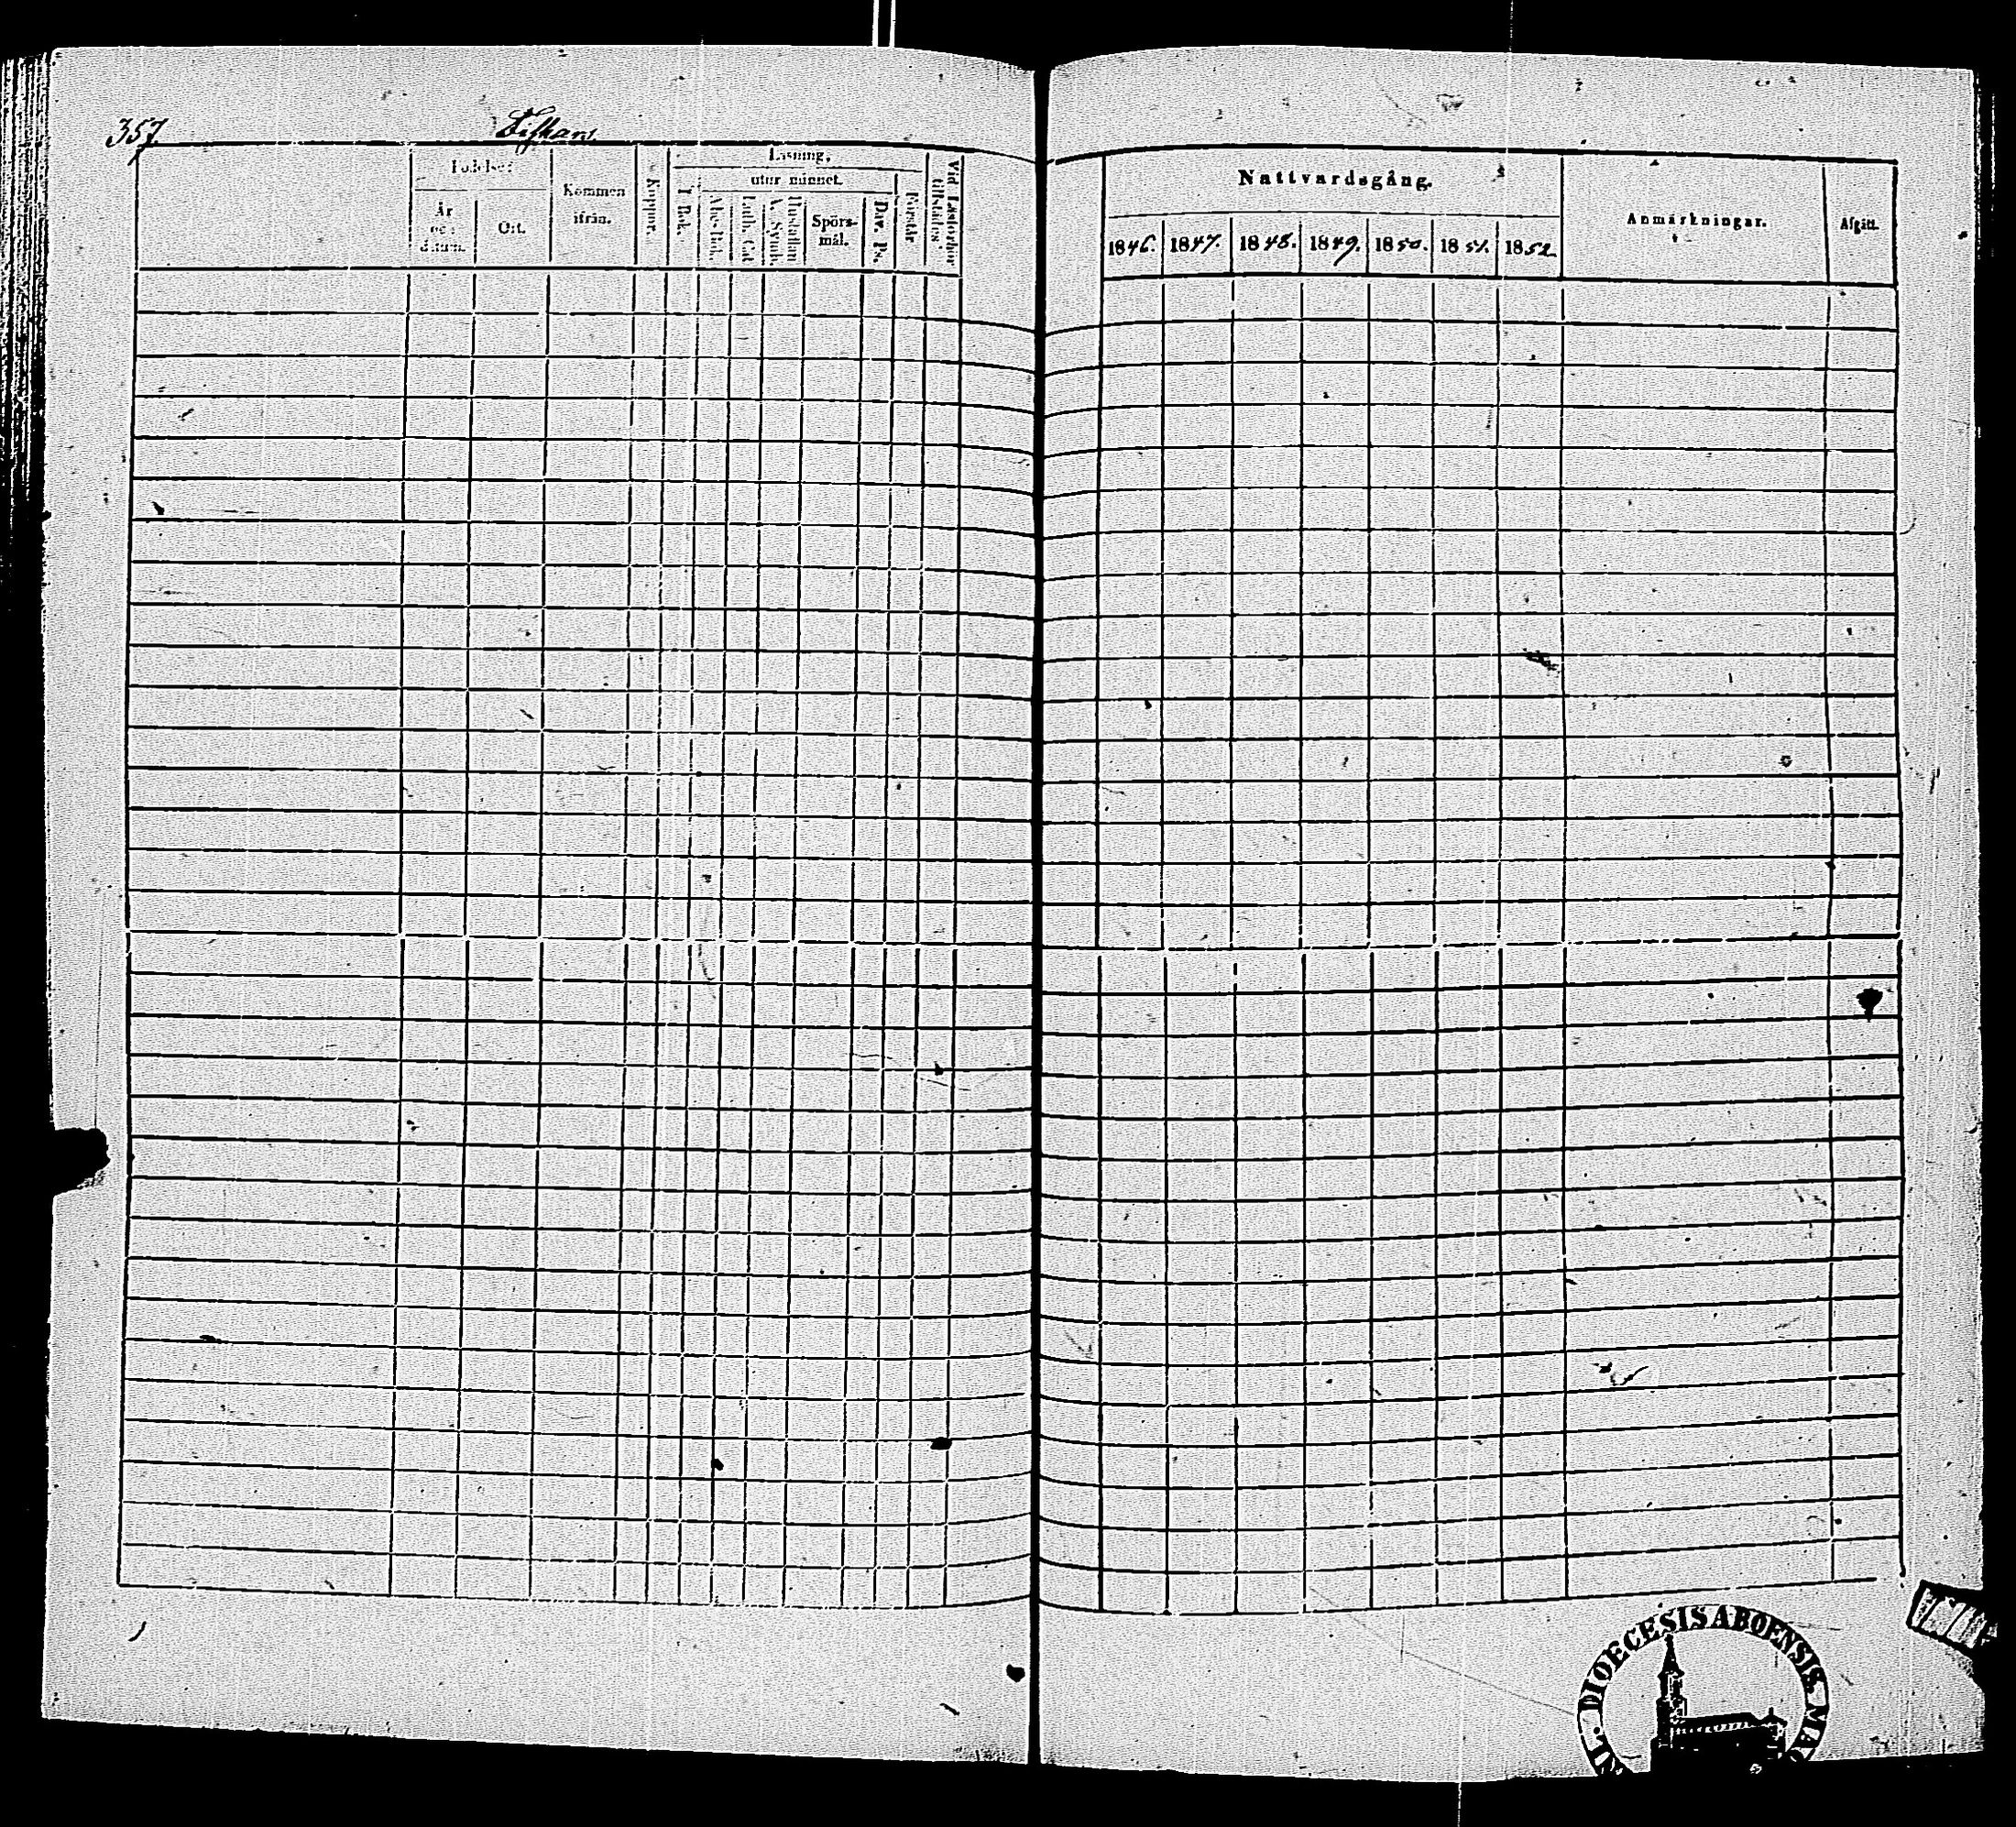 357.
Födelse:
År och datum.
Ort.
Kommen ifrån.
Koppor.
Läsning,
I Bok.
utur minnet.
Abc-bok.
Luth. Cat.
Spörs-
mål.
Dav. Ps.
Förstår.
Vid Läsförhör
tillstädes
Nattvardsgång.
1846.
1847.
1848.
1849.
1850.
1851.
1852.
Anmärkningar.
Afgått.
DIOECESIS ABOENSIS.